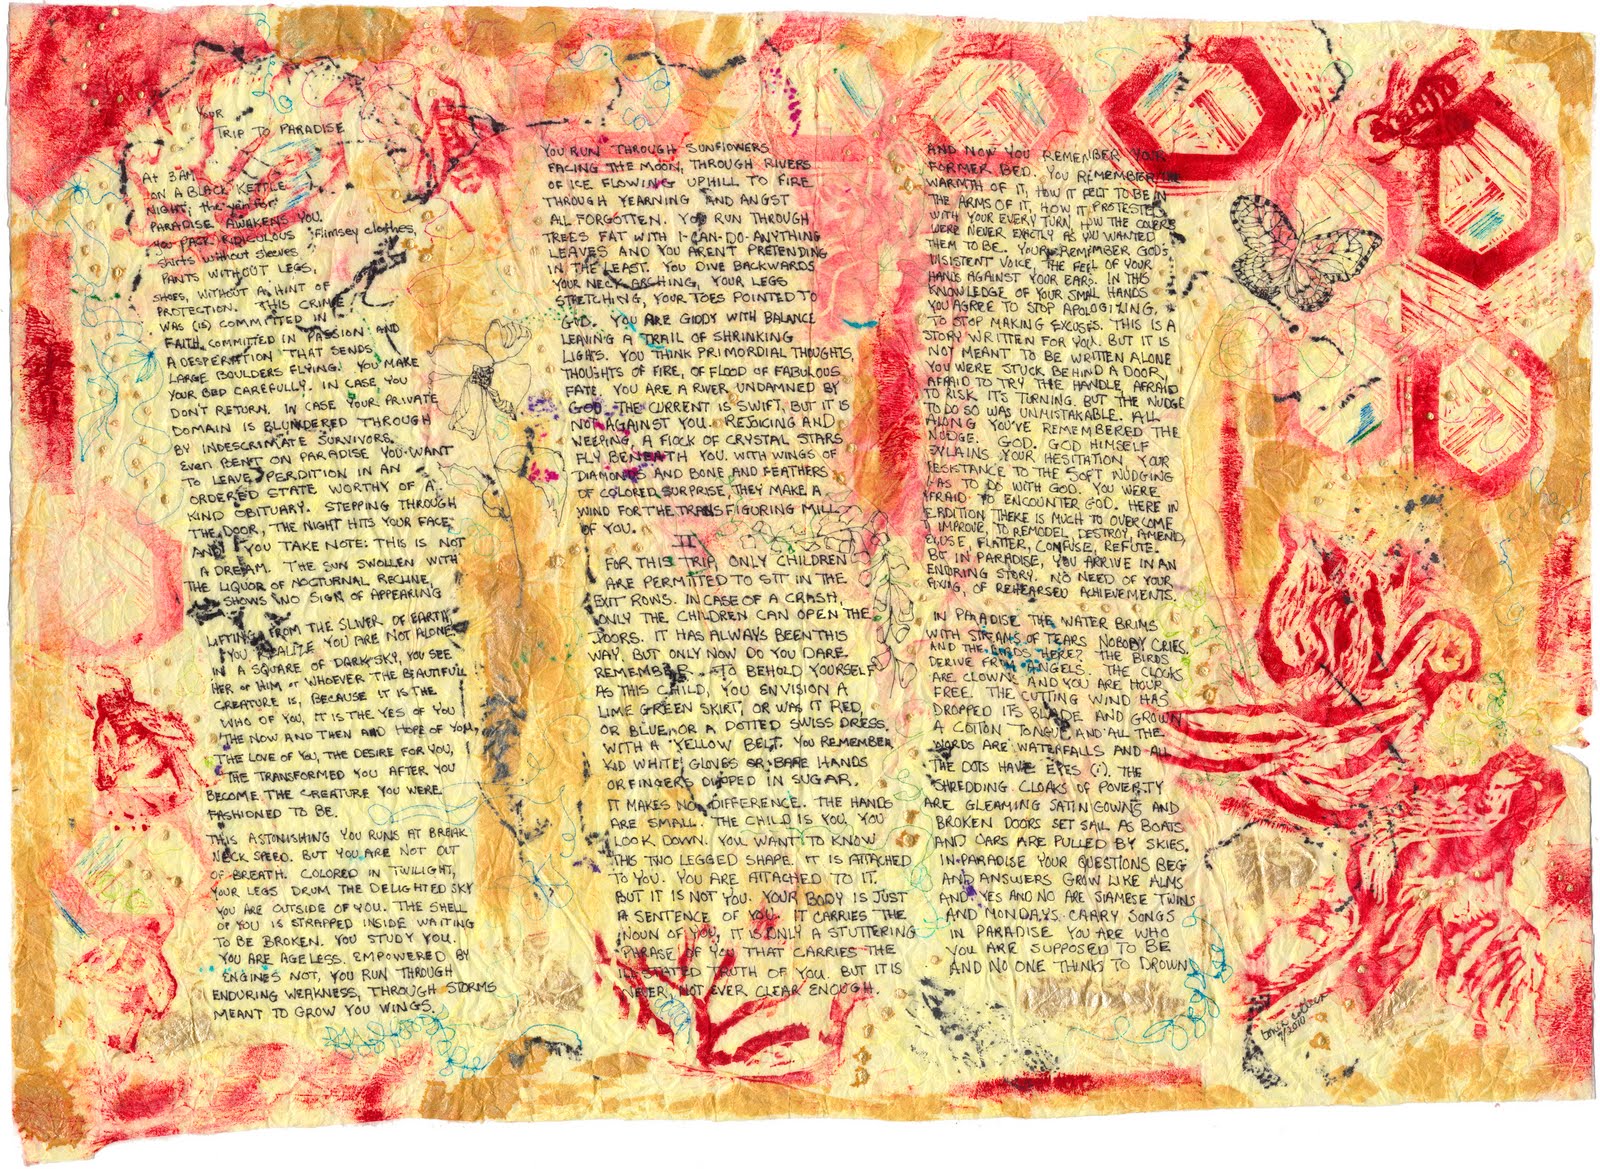 YOUR
TRIP TO PARADISE
AT 3 AM
ON A BLACK KETTLE
NIGHT, the yen for
PARADISE AWAKENS YOU.
YOU PACK RIDICULOUS Flimsey clothes,
shirts without sleeves
PANTS WITHOUT LEGS,
SHOES, WITHOUT A HINT OF
PROTECTION. THIS CRIME
WAS (IS) COMMITTED IN
FAITH. COMMITTED IN PASSION AND
A DESPERATION THAT SENDS
LARGE BOULDERS FLYING. YOU MAKE
YOUR BED CAREFULLY. IN CASE YOU
DON'T RETURN. IN CASE YOUR PRIVATE
DOMAIN IS BLUNDERED THROUGH
BY INDESCRIMATE SURVIVORS.
Even BENT ON PARADISE YOU WANT
TO LEAVE PERDITION IN AN
ORDERED STATE WORTHY OF A
KIND OBITUARY. STEPPING THROUGH
THE DOOR, THE NIGHT HITS YOUR FACE,
AND YOU TAKE NOTE: THIS IS NOT
A DREAM. THE SUN SWOLLEN WITH
THE LIQUOR OF NOCTURNAL RECLINE,
SHOWS NO SIGN OF APPEARING
LIFTING FROM THE SLIVER OF EARTH
YOU REALIZE YOU ARE NOT ALONE,
IN A SQUARE OF DARK SKY, YOU SEE
HER or HIM or WHOEVER THE BEAUTIFUL
CREATURE IS, BECAUSE IT IS THE
WHO OF YOU, IT IS THE YES OF YOU
THE NOW AND THEN AND HOPE OF YOU,
THE LOVE OF YOU, THE DESIRE FOR YOU,
THE TRANSFORMED YOU AFTER YOU
BECOME THE CREATURE YOU WERE
FASHIONED TO BE.
THIS ASTONISHING YOU RUNS AT BREAK
NECK SPEED. BUT YOU ARE NOT OUT
OF BREATH. COLORED IN TWILIGHT,
YOUR LEGS DRUM THE DELIGHTED SKY
YOU ARE OUTSIDE OF YOU. THE SHELL
OF YOU IS STRAPPED INSIDE WAITING
TO BE BROKEN. YOU STUDY YOU.
YOU ARE AGELESS. EMPOWERED BY
ENGINES NOT, YOU RUN THROUGH
ENDURING WEAKNESS, THROUGH STORMS
MEANT TO GROW YOU WINGS.
YOU RUN THROUGH SUNFLOWERS
FACING THE MOON, THROUGH RIVERS
OF ICE FLOWING UPHILL TO FIRE
THROUGH YEARNING AND ANGST
ALL FORGOTTEN. YOU RUN THROUGH
TREES FAT WITH I-CAN-DO-ANYTHING
LEAVES AND YOU ARENT PRETENDING
IN THE LEAST. YOU DIVE BACKWARDS
YOUR NECK ARCHING, YOUR LEGS
STRETCHING, YOUR TOES POINTED TO
GOD. YOU ARE GIDDY WITH BALANCE
LEAVING A TRAIL OF SHRINKING
LIGHTS. YOU THINK PRIMORDIAL THOUGHTS,
THOUGHTS OF FIRE, OF FLOOD OF FABULOUS
FATE. YOU ARE A RIVER UNDAMNED BY
GOD. THE CURRENT IS SWIFT, BUT IT IS
NOT AGAINST YOU. REJOICING AND
WEEPING, A FLOCK OF CRYSTAL STARS
FLY BENEATH YOU. WITH WINGS OF
DIAMONDS AND BONE AND FEATHERS
OF COLORED SURPRISE, THEY MAKE A
WIND FOR THE TRANSFIGURING MILL
OF YOU.
II
FOR THIS TRIP, ONLY CHILDREN
ARE PERMITTED TO SIT IN THE
EXIT ROWS. IN CASE OF A CRASH,
ONLY THE CHILDREN CAN OPEN THE
DOORS. IT HAS ALWAYS BEEN THIS
WAY. BUT ONLY NOW DO YOU DARE
REMEMBER TO BEHOLD YOURSELF
AS THIS CHILD, YOU ENVISION A
LIME GREEN SKIRT, OR WAS IT RED,
OR BLUE, OR A DOTTED SWISS DRESS,
WITH A YELLOW BELT. YOU REMEMBER
KID WHITE GLOVES OR BARE HANDS
OR FINGERS DIPPED IN SUGAR.
IT MAKES NO DIFFERENCE. THE HANDS
ARE SMALL. THE CHILD IS YOU. YOU
LOOK DOWN. YOU WANT TO KNOW
THIS TWO LEGGED SHAPE. IT IS ATTACHED
TO YOU. YOU ARE ATTACHED TO IT.
BUT IT IS NOT YOU. YOUR BODY IS JUST
A SENTENCE OF YOU. IT CARRIES THE
NOUN OF YOU, IT IS ONLY A STUTTERING
PHRASE OF YOU THAT CARRIES THE
TRUTH OF YOU. BUT IT IS
NEVER NOT EVER CLEAR ENOUGH.
AND NOW YOU REMEMBER YOUR
FORMER BED. YOU REMEMBER THE
WARMTH OF IT, HOW IT FELT TO BE IN
THE ARMS OF IT, HOW IT PROTESTED
WITH YOUR EVERY TURN, HOW THE COVERS
WERE NEVER EXACTLY AS YOU WANTED
THEM TO BE. YOU REMEMBER GOD'S
INSISTENT VOICE, THE FEEL OF YOUR
HANDS AGAINST YOUR EARS. IN THIS
KNOWLEDGE OF YOUR SMALL HANDS
YOU AGREE TO STOP APOLOGIZING,
TO STOP MAKING EXCUSES. THIS IS A
STORY WRITTEN FOR YOU. BUT IT IS
NOT MEANT TO BE WRITTEN ALONE
YOU WERE STUCK BEHIND A DOOR,
AFRAID TO TRY THE HANDLE, AFRAID
TO RISK IT'S TURNING. BUT THE NUDGE
TO DO SO WAS UNMISTAKABLE. ALL
ALONG YOU'VE REMEMBERED THE
NUDGE. GOD. GOD HIMSELF
EXPLAINS YOUR HESITATION. YOUR
RESISTANCE TO THE SOFT NUDGING
HAS TO DO WITH GOD. YOU WERE
AFRAID TO ENCOUNTER GOD. HERE IN
PERDITION THERE IS MUCH TO OVERCOME
TO IMPROVE, TO REMODEL, DESTROY, AMEND,
EXCUSE, FLATTER, CONFUSE, REFUTE.
BUT IN PARADISE, YOU ARRIVE IN AN
ENDURING STORY. NO NEED OF YOUR
FIXING, OF REHEARSED ACHIEVEMENTS.
IN PARADISE THE WATER BRIMS
WITH STREAMS OF TEARS NOBOBY CRIES.
AND THE BIRDS HERE? THE BIRDS
DERIVE FROM ANGELS. THE CLOCKS
ARE CLOWNS AND YOU ARE HOUR
FREE. THE CUTTING WIND HAS
DROPPED ITS BLADE AND GROWN
A COTTON TONGUE AND ALL THE
WORDS ARE WATERFALLS AND ALL
THE DOTS HAVE EYES (i). THE
SHREDDING CLOAKS OF POVERTY
ARE GLEAMING SATIN GOWNS AND
BROKEN DOORS SET SAIL AS BOATS
AND OARS ARE PULLED BY SKIES.
IN PARADISE YOUR QUESTIONS BEG
AND ANSWERS GROW LIKE ALMS
AND YES AND NO ARE SIAMESE TWINS
AND MONDAYS CARRY SONGS
IN PARADISE YOU ARE WHO
YOU ARE SUPPOSED TO BE
AND NO ONE THINKS TO DROWN
2010